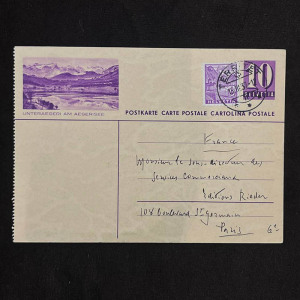 10
HELVETIA
UNTERAEGERI AM AEGERISEE
POSTKARTE CARTE POSTALE CARTOLINA POSTALE
France
Monsieur le sous-directeur des
Services Commerciaux
Editions Rieder
108 boulevard St germain
Paris 6e